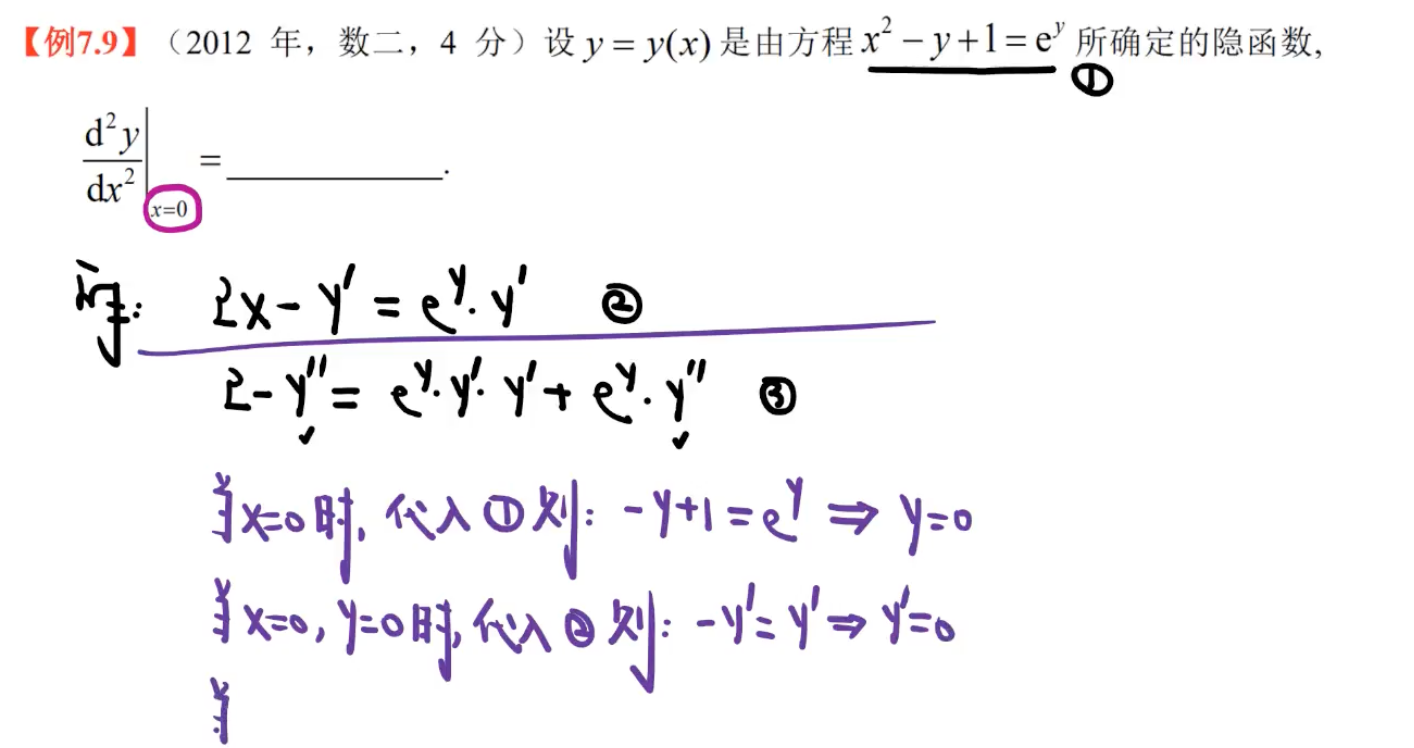 【例7.9】（2012 年，数二，4 分）设 y = y(x) 是由方程 x² − y + 1 = eʸ 所确定的隐函数,
①
d²y/dx² |x=0 = ________.
解: 2x - y' = eʸ · y' ②
2 - y'' = eʸ · y' · y' + eʸ · y'' ③
当x=0时, 代入①则: -y+1 = eʸ ⇒ y=0
当x=0, y=0时, 代入②则: -y' = y' ⇒ y'=0
当